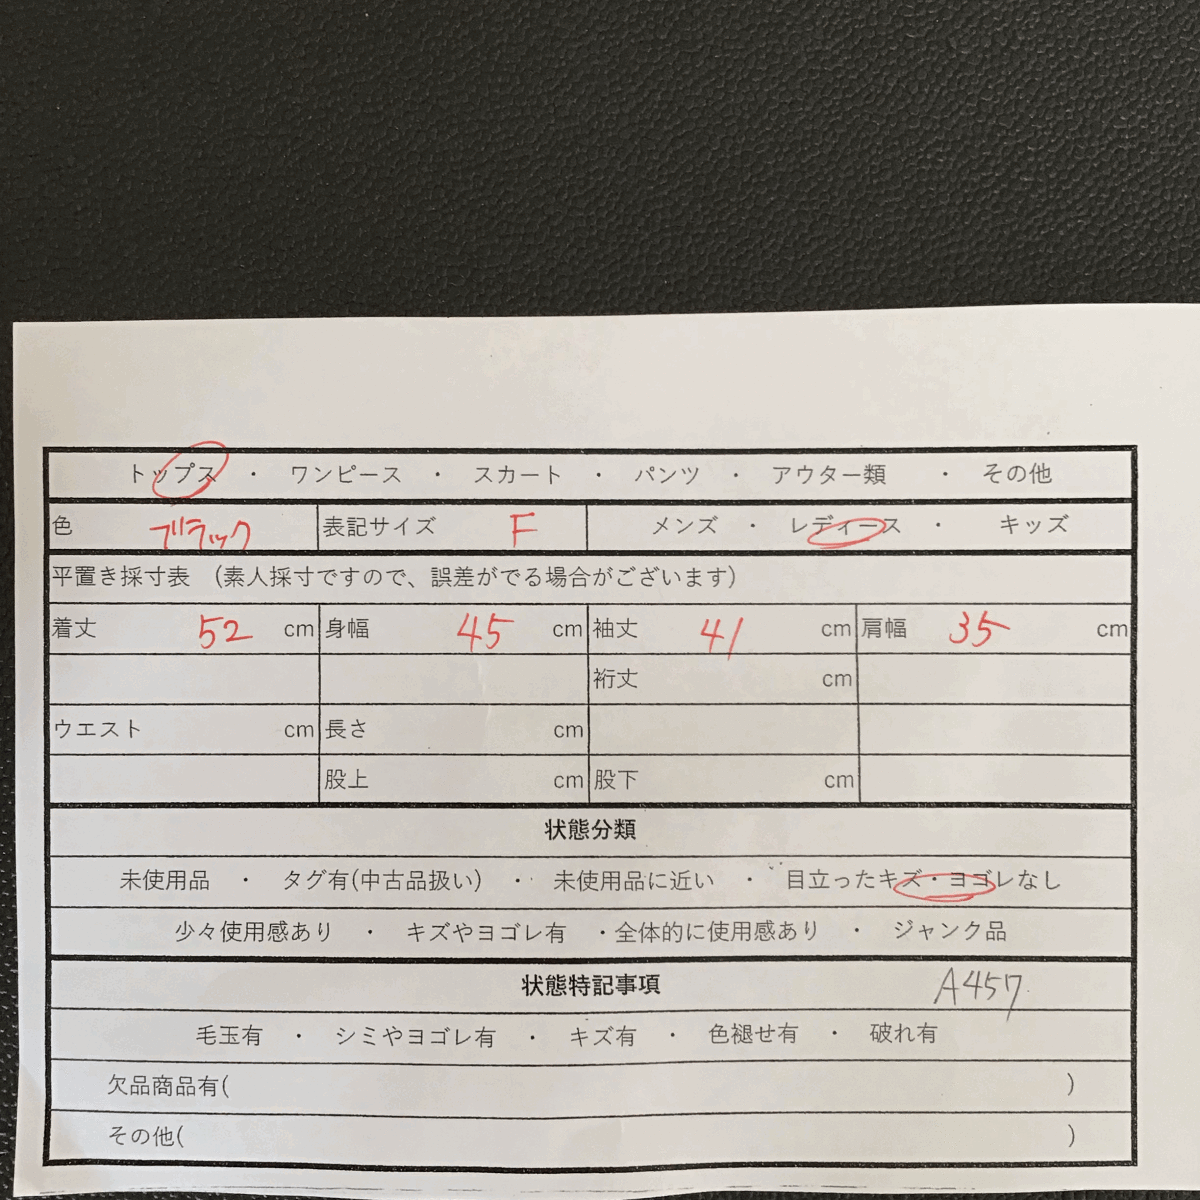 トップス ・ ワンピース ・ スカート ・ パンツ ・ アウター類 ・ その他
色 ブラック 表記サイズ F メンズ ・ レディース ・ キッズ
平置き採寸表 (素人採寸ですので、誤差がでる場合がございます)
着丈 52 cm 身幅 45 cm 袖丈 41 cm 肩幅 35 cm
裄丈 cm
ウエスト cm 長さ cm
股上 cm 股下 cm
状態分類
未使用品 ・ タグ有(中古品扱い) ・ 未使用品に近い ・ 目立ったキズ・ヨゴレなし
少々使用感あり ・ キズやヨゴレ有 ・全体的に使用感あり ・ ジャンク品
状態特記事項 A457
毛玉有 ・ シミやヨゴレ有 ・ キズ有 ・ 色褪せ有 ・ 破れ有
欠品商品有( )
その他( )